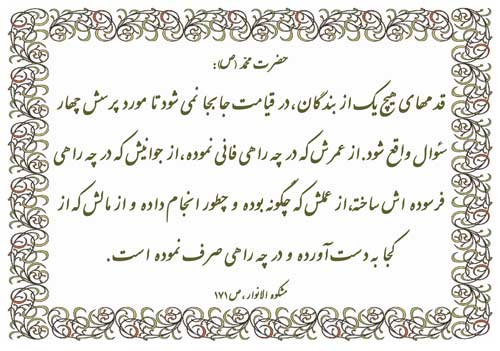 حضرت محمّد (ص):
قدمهای هیچ یک از بندگان، در قیامت جابجا نمی شود تا مورد پرسش چهار
سؤال واقع شود. از عمرش که در چه راهی فانی نموده، از جوانیش که در چه راهی
فرسوده اش ساخته، از عملش که چگونه بوده و چطور انجام داده و از مالش که از
کجا به دست آورده و در چه راهی صرف نموده است.
مشکوه الانوار، ص ۱۷۱